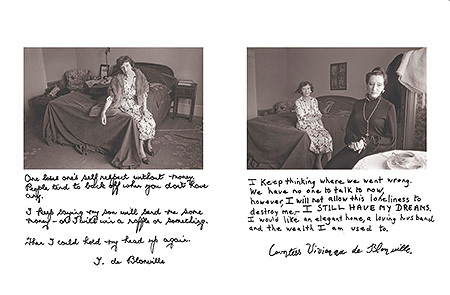 One loses one's self respect without money.
People tend to back off when you don't have
any.
I keep saying my son will send me some
money – or I'll win a raffle or something.
Then I could hold my head up again.
T. de Blonville
I keep thinking where we went wrong.
We have no one to talk to now,
however, I will not allow this loneliness to
destroy me,– I STILL HAVE MY DREAMS.
I would like an elegant home, a loving husband
and the wealth I am used to.
Countess Vivianna de Blonville.